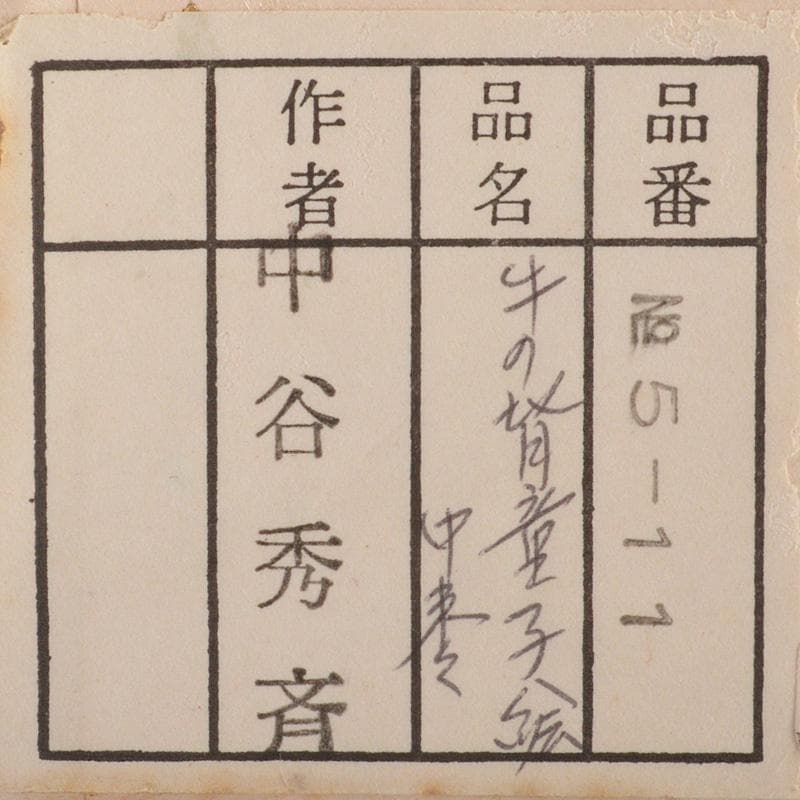 品番
№5-11
品名
牛の背童子絵
中棗
作者
中谷秀斉